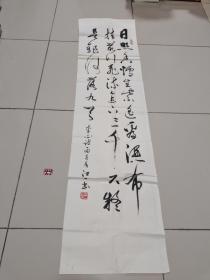 日照香炉生紫烟遥看瀑布
挂前川飞流直下三千尺疑
是银河落九天 李白诗 书